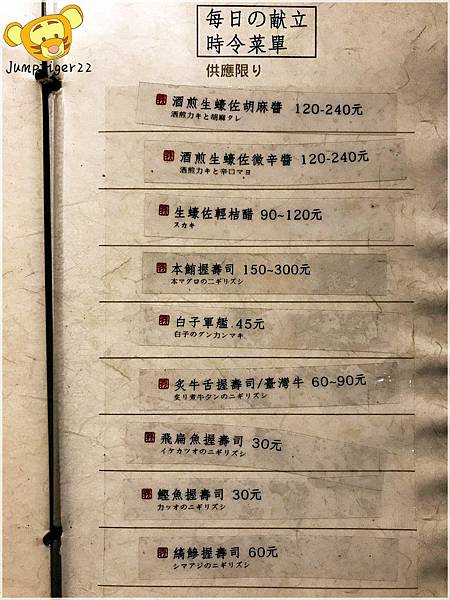 Jumptiger22
每日の献立
時令菜單
供應限り
酒煎生蠔佐胡麻醬 120-240元
酒煎カキと胡麻タレ
酒煎生蠔佐微辛醬 120-240元
酒煎カキと辛口マヨ
生蠔佐輕桔醋 90~120元
スカキ
本鮪握壽司 150~300元
本マグロの二ギリズシ
白子軍艦 45元
白子のグンカンマキ
炙牛舌握壽司/臺灣牛 60~90元
炙り煮牛タンのニギリズシ
飛扁魚握壽司 30元
イケカツオのニギリズシ
鰹魚握壽司 30元
カッオのニギリズシ
縞鰺握壽司 60元
シマアジのニギリズシ